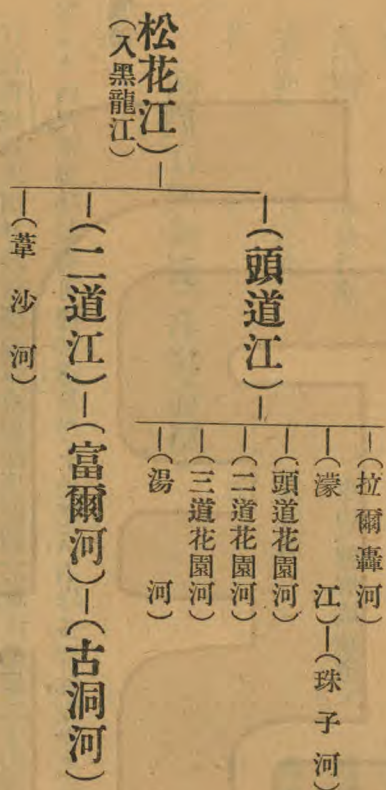 松花江
(入黑龍江)
(頭道江)
(拉爾轟河)
(濛江)—(珠子河)
(頭道花園河)
(二道花園河)
(三道花園河)
(湯河)
(二道江)—(富爾河)—(古洞河)
(葦沙河)